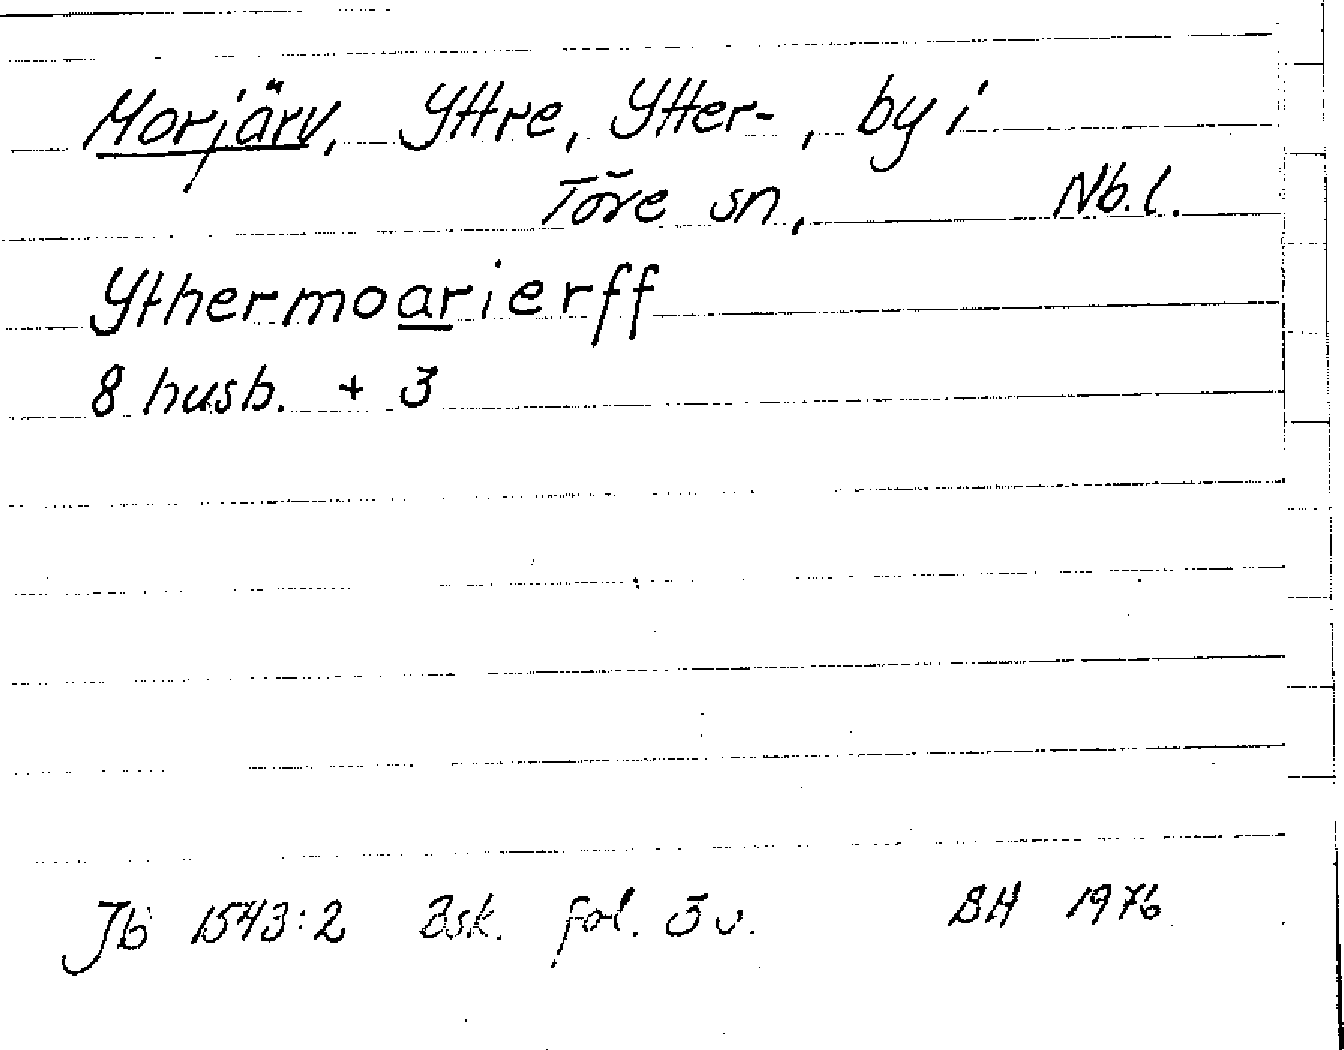 Morjärv, Yttre, Ytter-, by i
Töre sn, Nb.l.
Ythermoarierff
8 husb. + 3
Jb 1543:2 Bsk. fol. 5 v. BH 1976